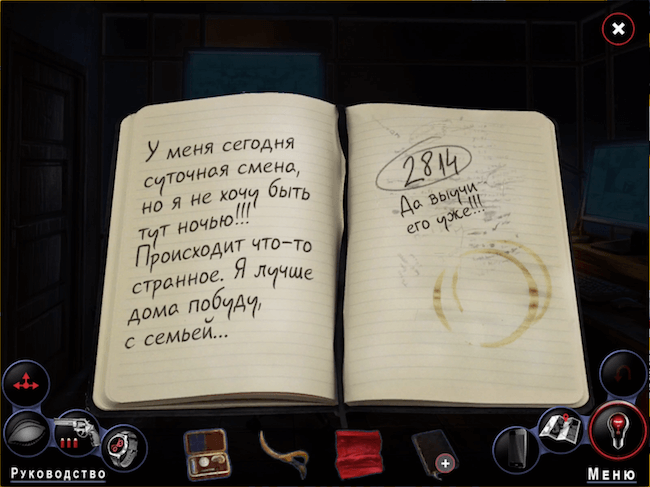 У меня сегодня
суточная смена,
но я не хочу быть
тут ночью!!!
Происходит что-то
странное. Я лучше
дома побуду,
с семьей...
2814
Да выучи
его уже!!!
Руководство
Меню